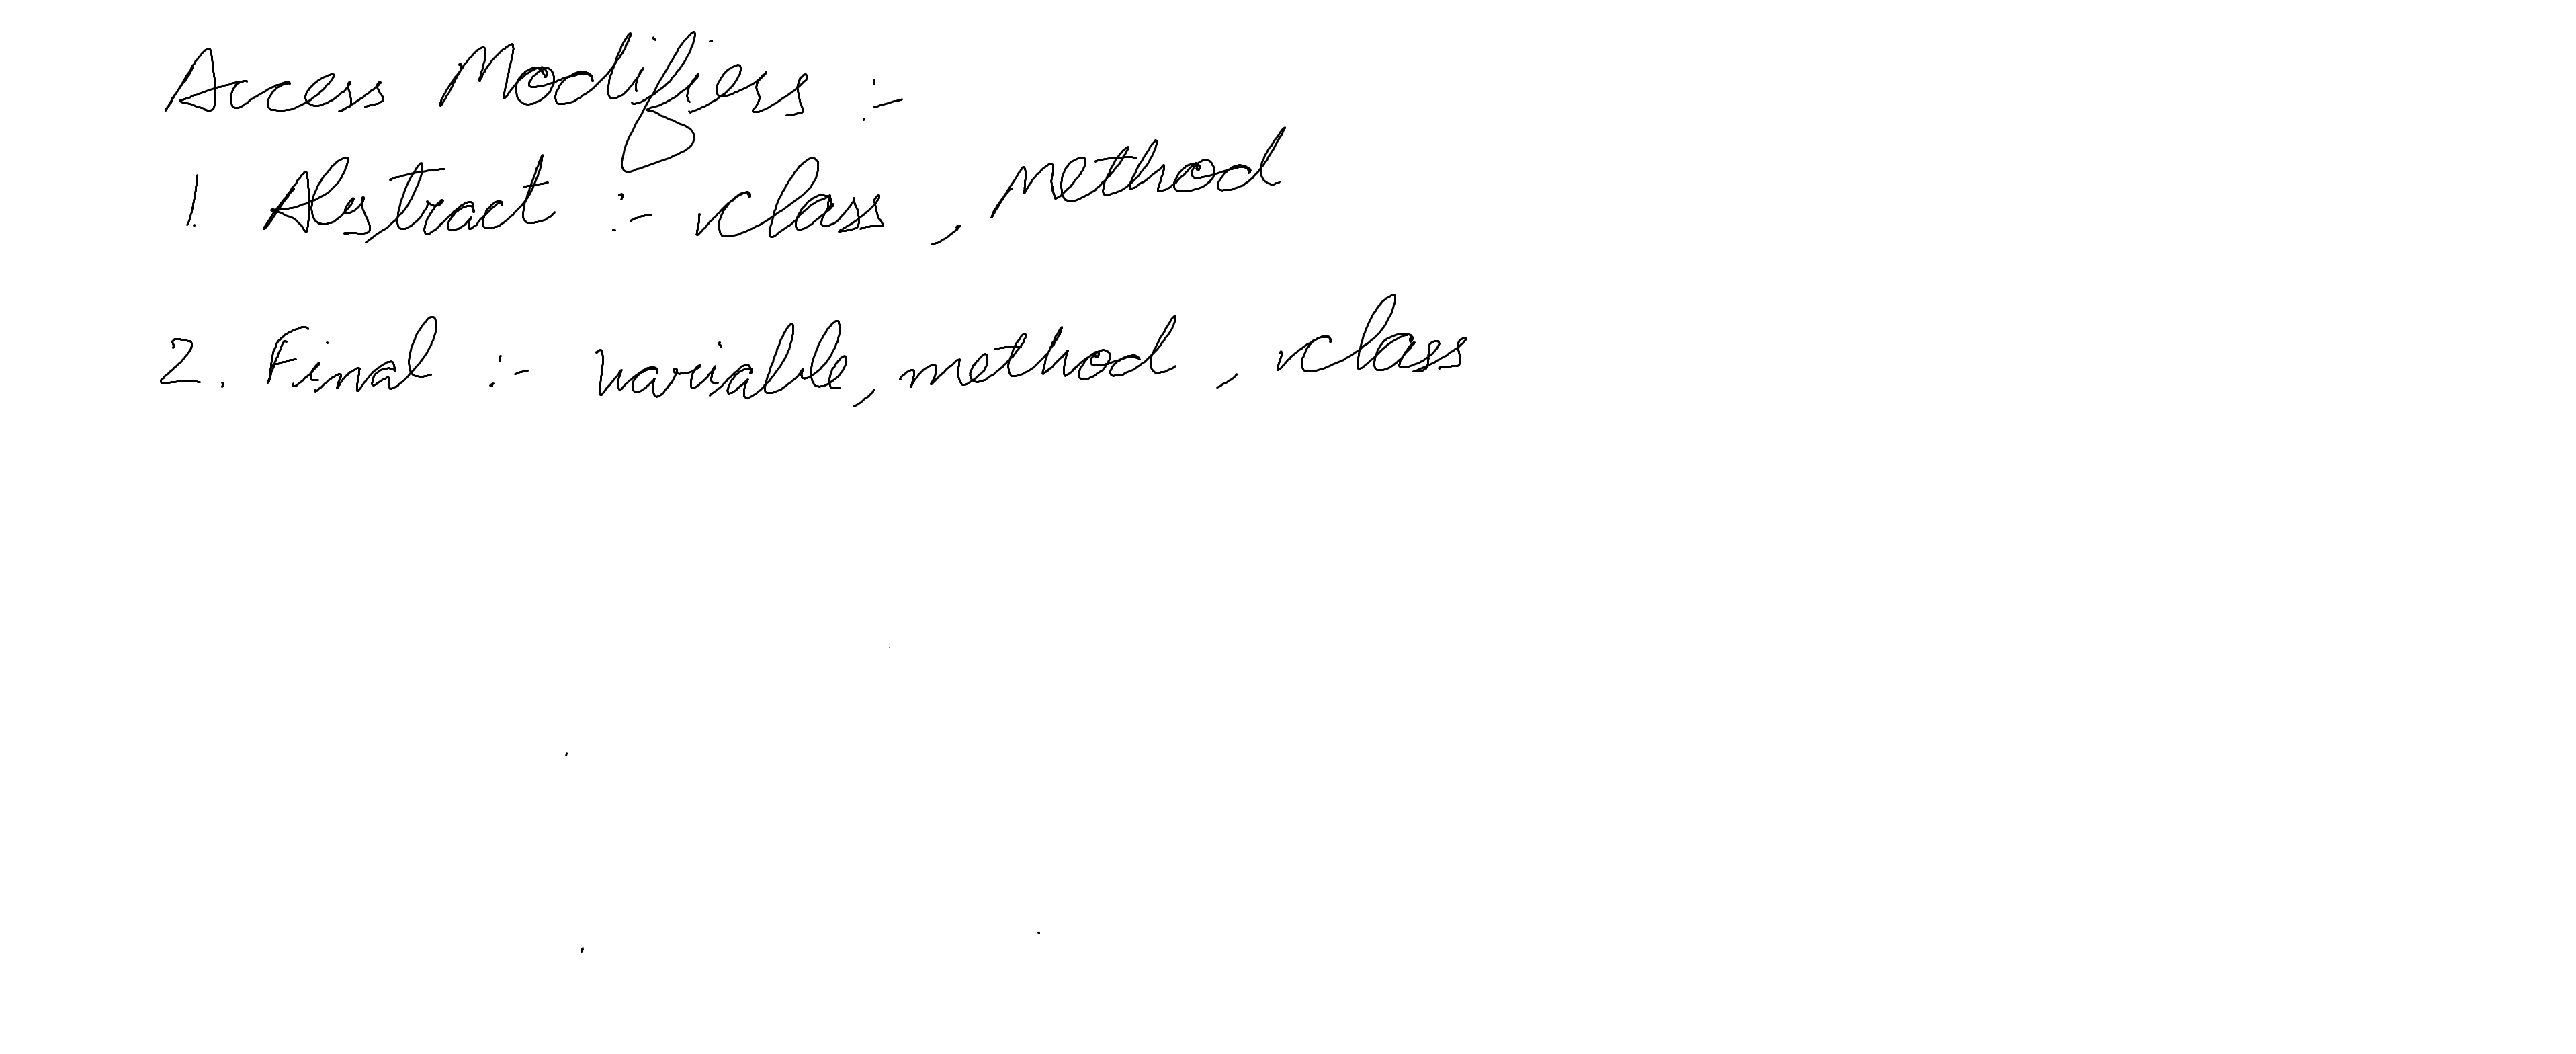 Access Modifiers :-
1. Abstract :- class, Method
2. Final :- variable, method, class